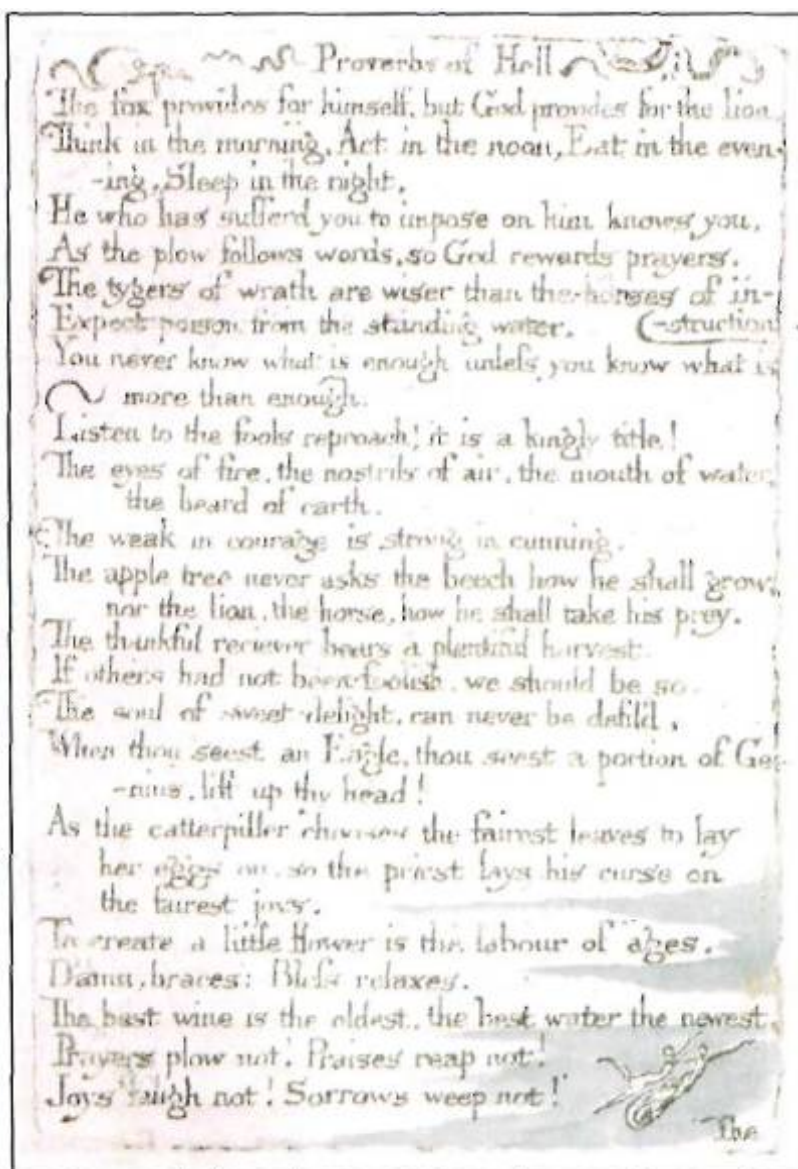 Proverbs of Hell
The fox provides for himself, but God provides for the lion.
Think in the morning, Act in the noon, Eat in the even-
-ing, Sleep in the night.
He who has sufferd you to impose on him knows you.
As the plow follows words, so God rewards prayers.
The tygers of wrath are wiser than the horses of in-
Expect poison from the standing water. (-struction
You never know what is enough unless you know what is
more than enough.
Listen to the fools reproach! it is a kingly title!
The eyes of fire, the nostrils of air, the mouth of water,
the beard of earth.
The weak in courage is strong in cunning.
The apple tree never asks the beech how he shall grow,
nor the lion, the horse, how he shall take his prey.
The thankful reciever bears a plentiful harvest.
If others had not been foolish, we should be so.
The soul of sweet delight, can never be defil'd,
When thou seest an Eagle, thou seest a portion of Ge-
-nius, lift up thy head!
As the catterpiller chooses the fairest leaves to lay
her eggs on, so the priest lays his curse on
the fairest joys.
To create a little flower is the labour of ages.
Damn, braces: Bless relaxes.
The best wine is the oldest, the best water the newest.
Prayers plow not! Praises reap not!
Joys laugh not! Sorrows weep not!
The